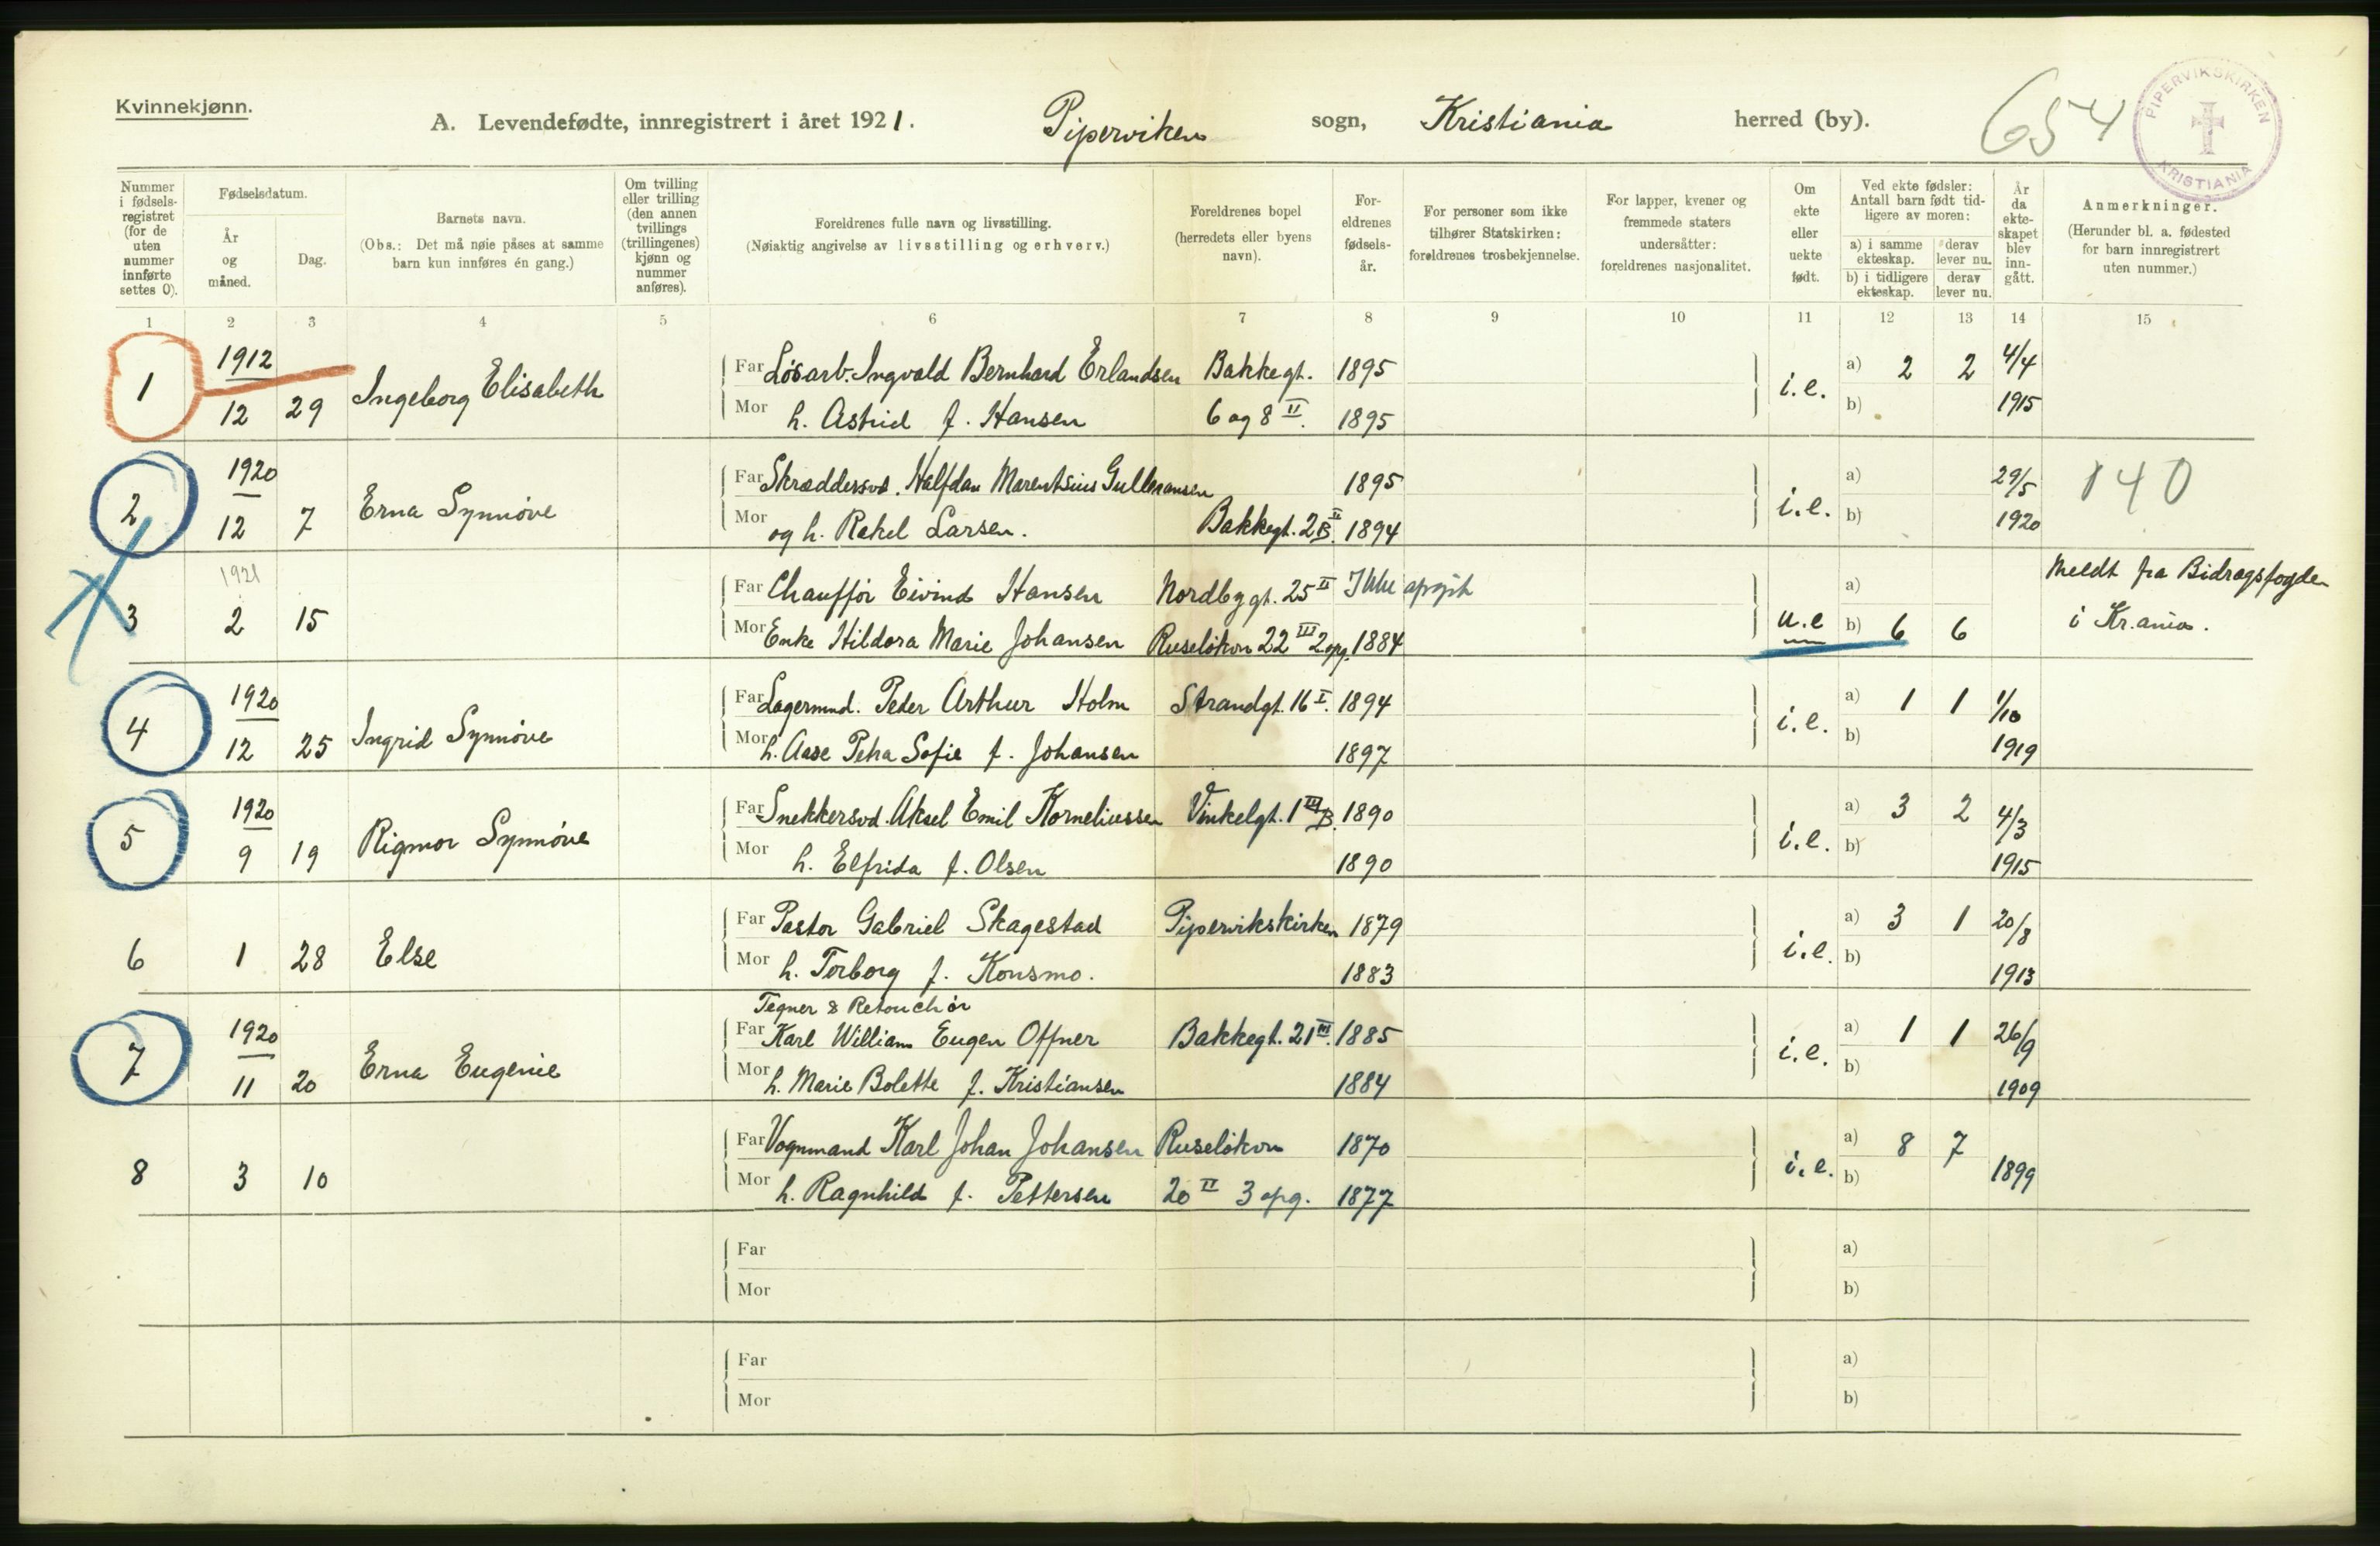 Kvinnekjønn.
A. Levendefødte, innregistrert i året 1921. Piperviken sogn, Kristiania herred (by).
654
PIPERVIKSKIRKEN
KRISTIANIA
Nummer i fødsels-registret (for de uten nummer innførte settes 0).
Fødselsdatum.
År og måned.
Dag.
Barnets navn.
(Obs.: Det må nøie påses at samme barn kun innføres én gang.)
Om tvilling eller trilling (den annen tvillings (trillingenes) kjønn og nummer anføres).
Foreldrenes fulle navn og livsstilling.
(Nøiaktig angivelse av livsstilling og erhverv.)
Foreldrenes bopel (herredets eller byens navn).
For-eldrenes fødsels-år.
For personer som ikke tilhører Statskirken: foreldrenes trosbekjennelse.
For lapper, kvener og fremmede staters undersåtter: foreldrenes nasjonalitet.
Om ekte eller uekte født.
Ved ekte fødsler: Antall barn født tid-ligere av moren:
a) i samme ekteskap.
derav lever nu.
b) i tidligere ekteskap.
derav lever nu.
År da ekte-skapet blev inn-gått.
Anmerkninger.
(Herunder bl. a. fødested for barn innregistrert uten nummer.)
1 2 3 4 5 6 7 8 9 10 11 12 13 14 15
1 1912 12 29 Ingeborg Elisabeth
Far Løsarb. Ingvald Bernhard Erlandsen Bakkegt. 1895
Mor h. Astrid f. Hansen 6 og 8 II. 1895
i.e. a) 2 2 4/4
b) 1915
2 1920 12 7 Erna Synnøve
Far Skræddersvd. Halfdan Marentsius Gulbransen 1895
Mor og h. Rakel Larsen. Bakkegt. 2B II. 1894
i.e. a) 29/5
b) 1920
140
3 1921 2 15
Far Chauffør Eivind Hansen Nordbygt. 25 II Ikke opgit
Mor Enke Hildora Marie Johansen Ruseløkvn 22 III 2 opg. 1884
u.e a)
b) 6 6
Meldt fra Bidragsfogden
i Kr.ania.
4 1920 12 25 Ingrid Synnøve
Far Lagermnd. Peder Arthur Holm Strandgt. 16 I. 1894
Mor h. Aase Petra Sofie f. Johansen 1897
i.e. a) 1 1 1/10
b) 1919
5 1920 9 19 Rigmor Synnøve
Far Snekkersvd. Aksel Emil Korneliussen Vinkelgt. 1 III B. 1890
Mor h. Elfrida f. Olsen 1890
i.e. a) 3 2 4/3
b) 1915
6 1 28 Else
Far Pastor Gabriel Skagestad Pipervikskirken 1879
Mor h. Torborg f. Konsmo. 1883
i.e. a) 3 1 20/8
b) 1913
7 1920 11 20 Erna Eugenie
Tegner & Retouchør
Far Karl William Eugen Offner Bakkegt. 21 III. 1885
Mor h. Marie Bolette f. Kristiansen 1884
i.e. a) 1 1 26/9
b) 1909
8 3 10
Far Vognmand Karl Johan Johansen Ruseløkvn 1870
Mor h. Ragnhild f. Pettersen 20 II 3 opg. 1877
i.e. a) 8 7
b) 1899
Far a)
Mor b)
Far a)
Mor b)